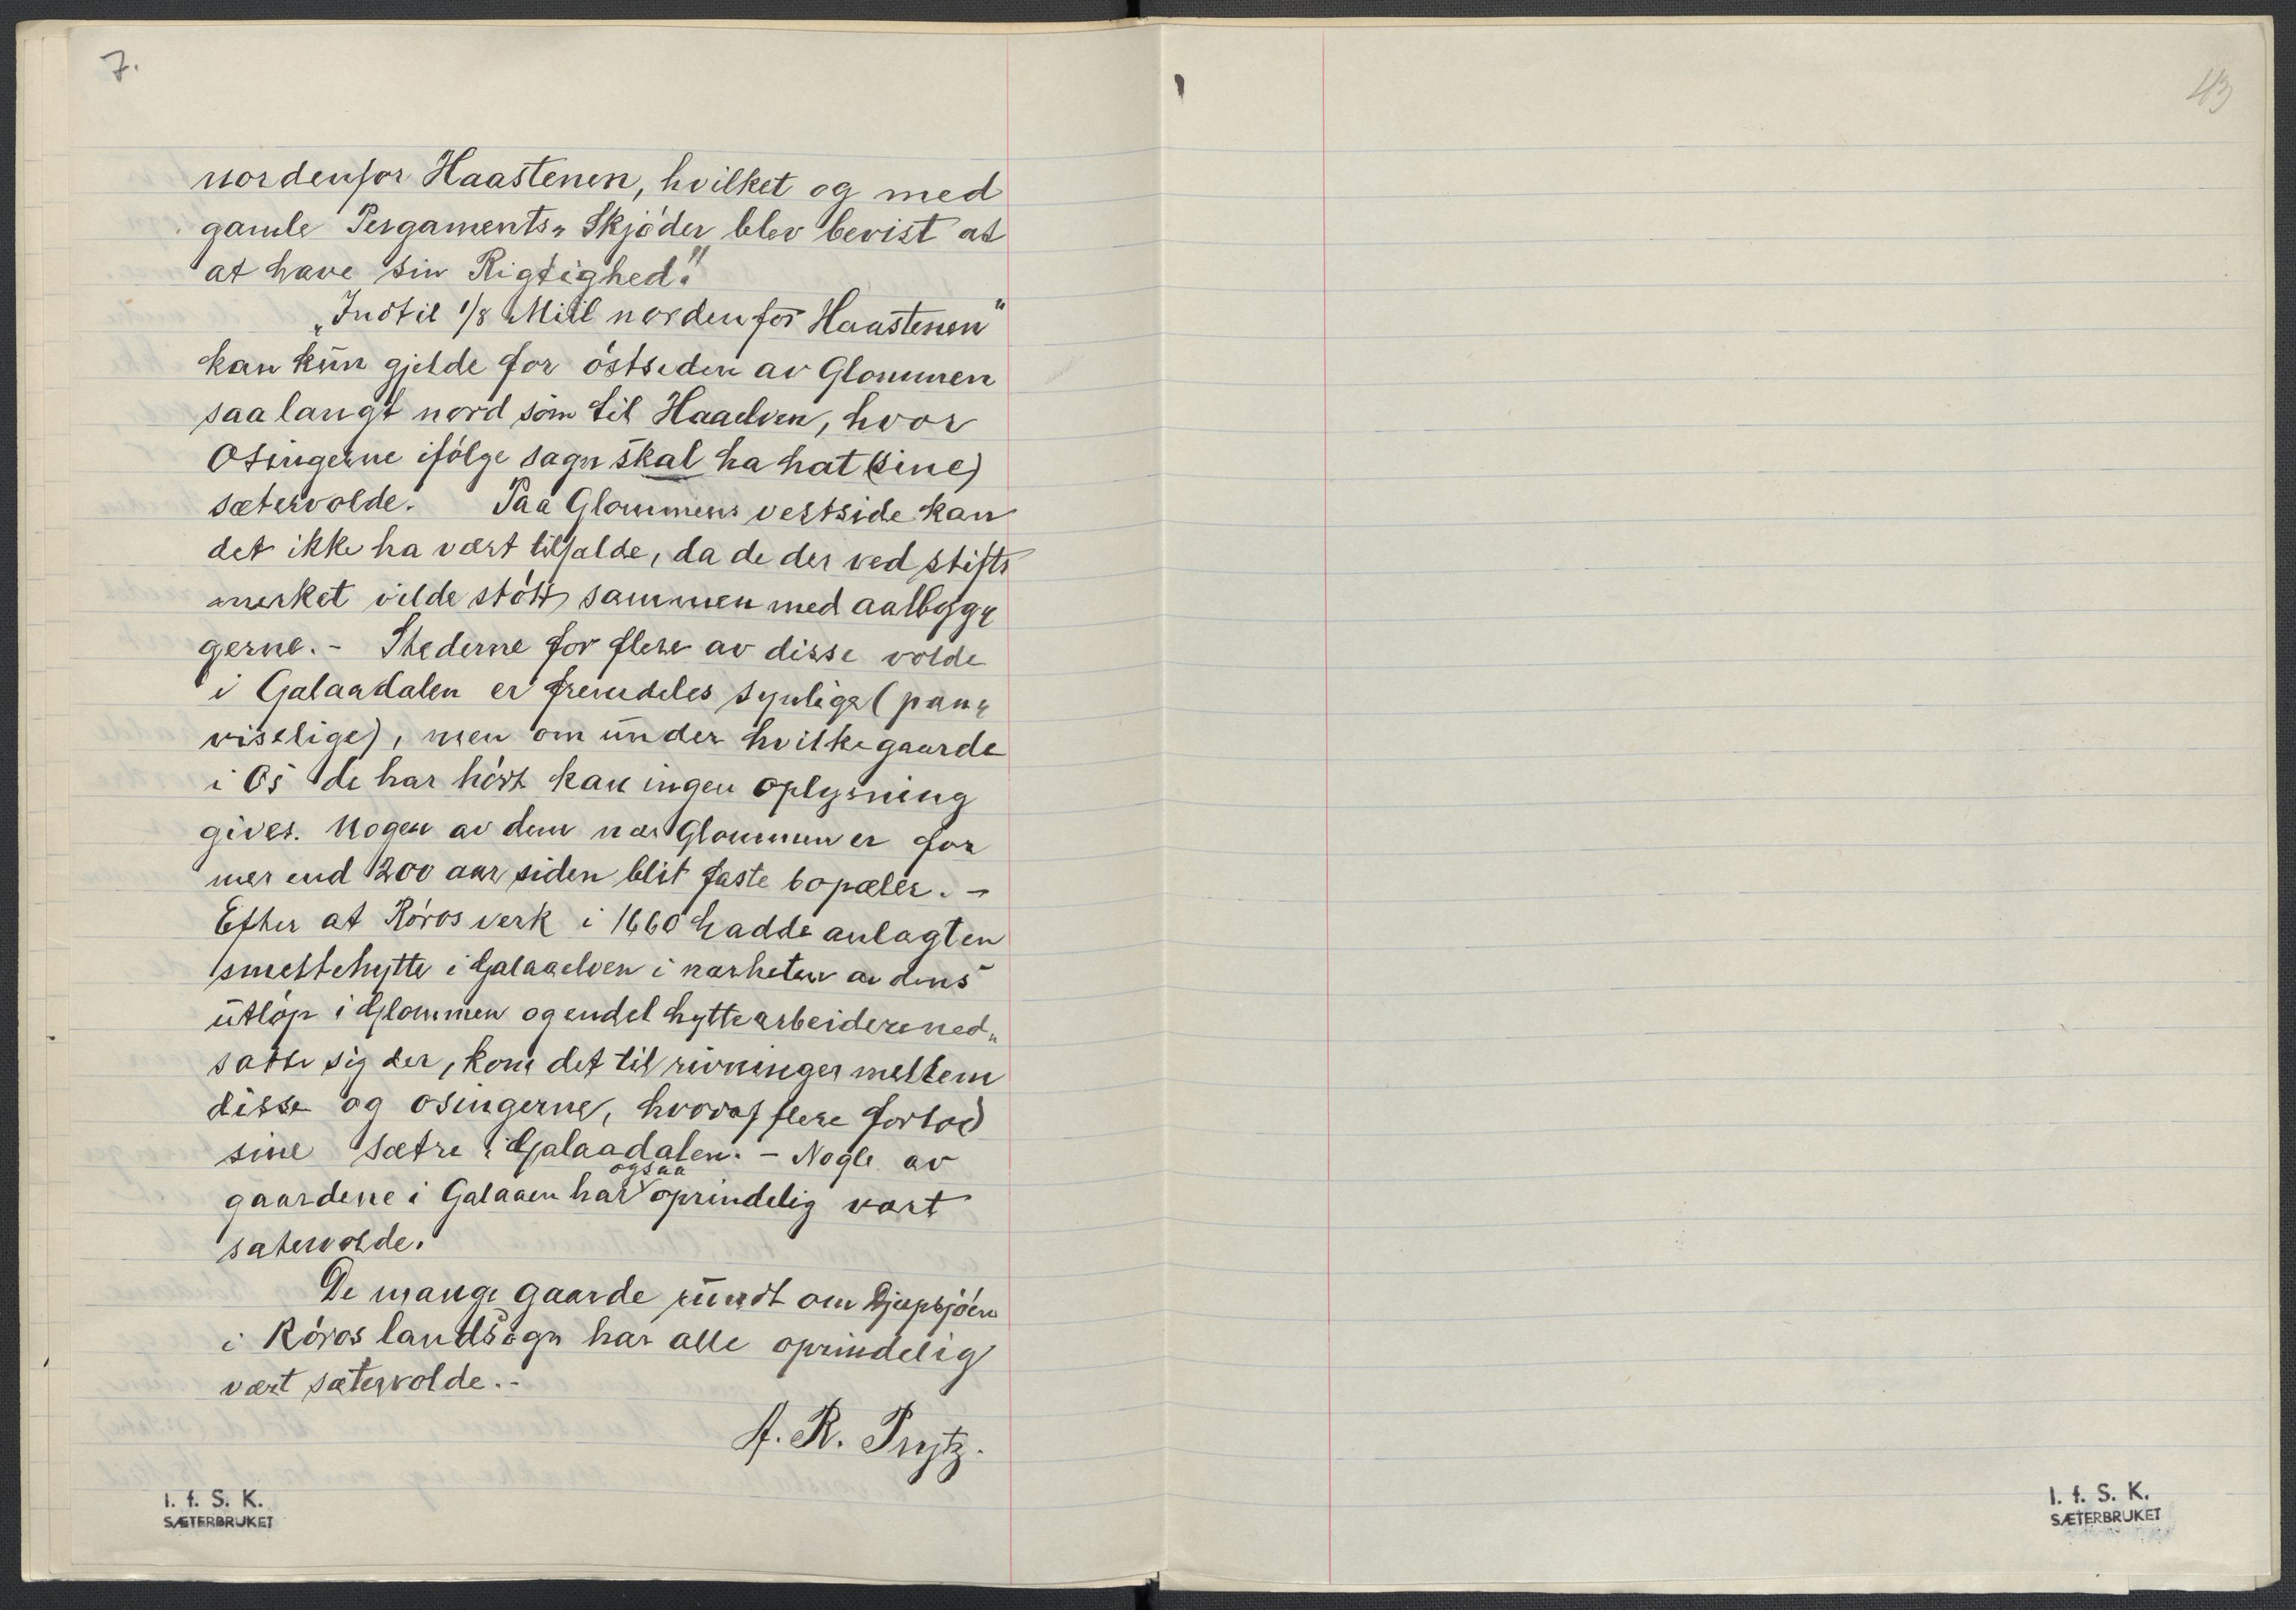 7.
nordenfor Haastenen, hvilket og med
gamle Pergaments„ Skjøder blev bevist at
at have sin Rigtighed."
„Indtil 1/8 Miil nordenfor Haastenen"
kan kūn gjelde for østsiden av Glommen
saalangt nord som til Haaelven, hvor
Osingerne ifølge sagn skal ha hat (sine)
sætervolde. Paa Glommens vestside kan
det ikke ha vært tilfælde, da de der ved stifts
merket vilde støtt sammen med aalbyg„
gerne. - Stederne for flere av disse volde
i Galaadalen er fremdeles synlige (paa„
viselige), men om ūnder hvilke gaarde
i Os de har hørt kan ingen oplysning
gives. Nogen av dem nær Glommen er for
mer end 200 aar siden blit faste bopæler. -
Efter at Røros verk i 1660 hadde anlagt en
smeltehytte i Galaaelven i nærheten av dens
ūtløp i Glommen og endel hyttearbeidere ned„
satte sig der, kom det til rivninger mellem
disse og osingerne, hvorav flere forlod
sine sætre i Galaadalen. - Nogle av
gaardene i Galaaen har ogsaa oprindelig vært
sætervolde.
De mange gaarde rūndt om Djupsjøen
i Røros landsogn har alle oprindelig
vært sætervolde. -
A. R. Prytz.
I. f. S. K.
SÆTERBRUKET
43
I. f. S. K.
SÆTERBRUKET